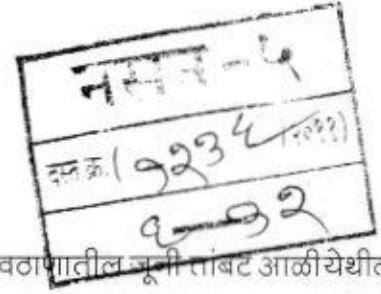 नसन - ५
दस्त क्र. ( १२३५ (२०११)
१ - १२
वठाणातील जूनी तांबट आळीयेथील